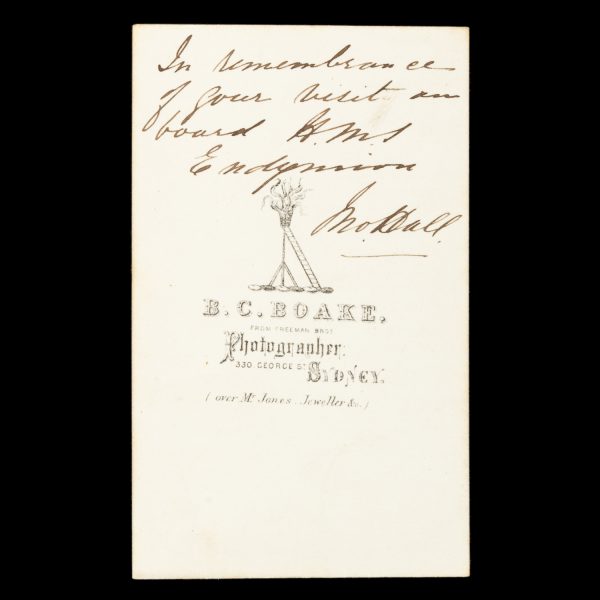 In remembrance
of your visit on
board H.M.S
Endymion
Jno Hall.
B. C. BOAKE,
FROM FREEMAN BROS
Photographer.
330 GEORGE ST
SYDNEY.
(over Mr Jones, Jeweller &c.)